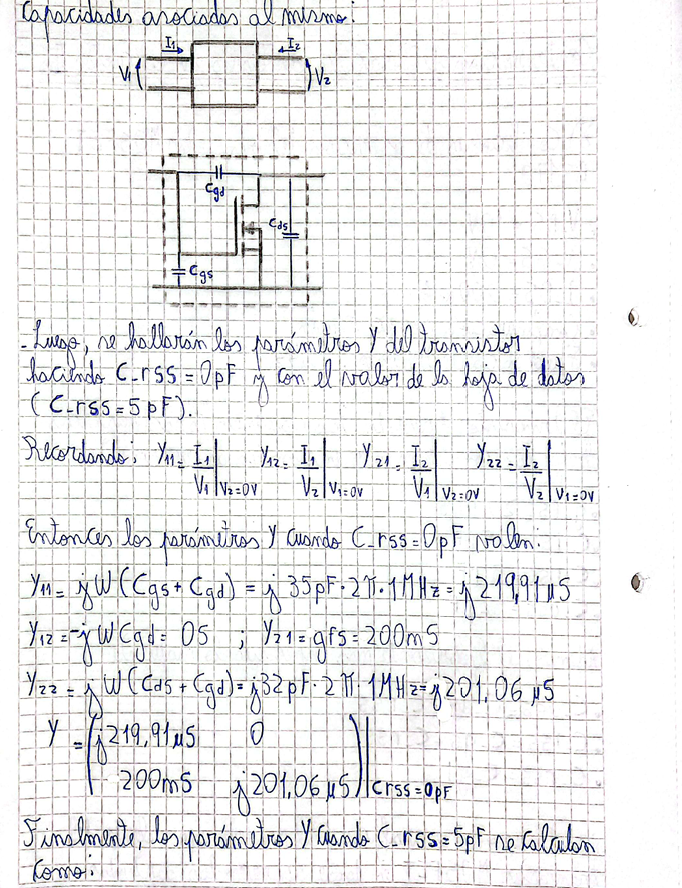 Capacidades asociadas al mismo:
I1 I2
V1 V2
Cgd
Cds
Cgs
- Luego, se hallarán los parámetros Y del transistor
haciendo C_rss = 0pF y con el valor de la hoja de datos
(C_rss = 5pF).
Recordando: Y11 = I1/V1 |V2=0V Y12 = I1/V2 |V1=0V Y21 = I2/V1 |V2=0V Y22 = I2/V2 |V1=0V
Entonces los parámetros Y cuando C_rss = 0pF valen:
Y11 = jW(Cgs + Cgd) = j 35pF·2π·1MHz = j219,91µS
Y12 = -jWCgd = 0S ; Y21 = gfs = 200mS
Y22 = jW(Cds + Cgd) = j32pF·2π·1MHz = j201,06µS
Y = (j219,91µS 0
200mS j201,06µS)|Crss=0pF
Finalmente, los parámetros Y cuando C_rss = 5pF se calculan
como: